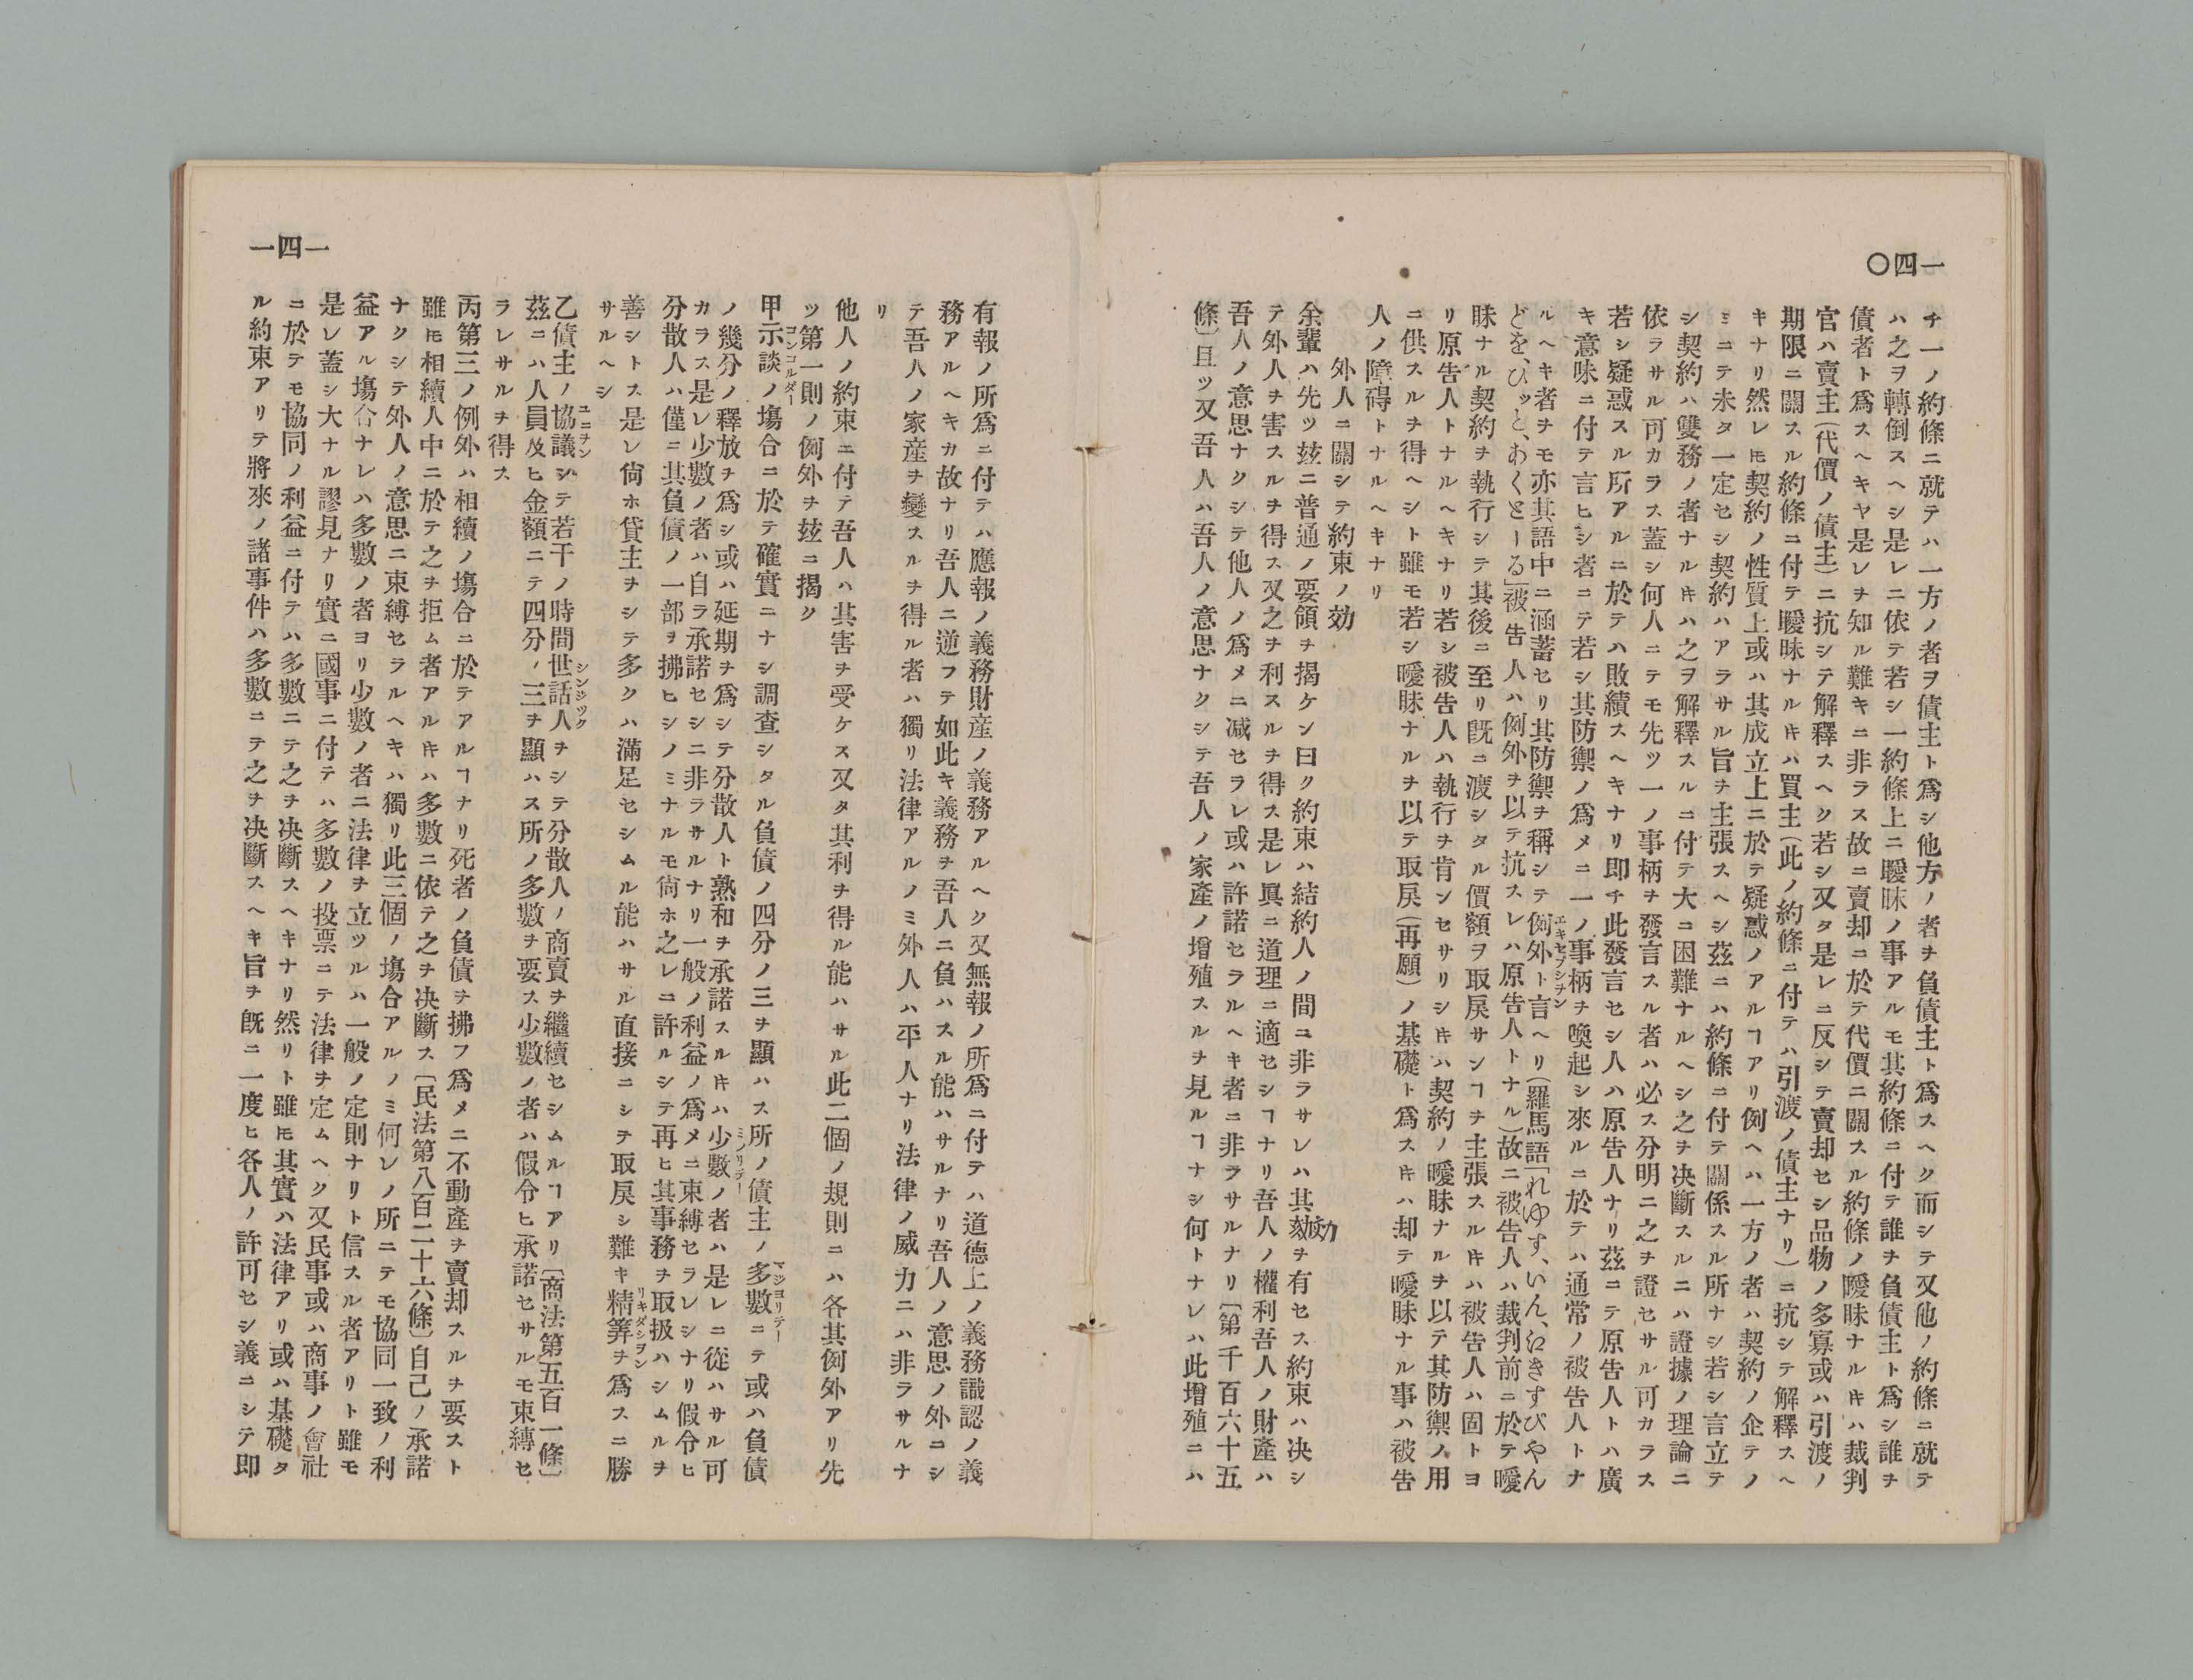 一四〇
チ一ノ約條ニ就テハ一方ノ者ヲ債主ト爲シ他方ノ者ヲ負債主ト爲スヘク而シテ又他ノ約條ニ就テ
ハ之ヲ轉倒スヘシ是レニ依テ若シ一約條上ニ曖昧ノ事アルモ其約條ニ付テ誰ヲ負債主ト爲シ誰ヲ
債者ト爲スヘキヤ是レヲ知ル難キニ非ラス故ニ賣却ニ於テ代價ニ關スル約條ノ曖昧ナルヰハ裁判
官ハ賣主(代價ノ債主)ニ抗シテ解釋スヘク若シ又タ是レニ反シテ賣却セシ品物ノ多寡或ハ引渡ノ
期限ニ關スル約條ニ付テ曖昧ナルヰハ買主(此ノ約條ニ付テハ引渡ノ債主ナリ)ニ抗シテ解釋スヘ
キナリ然レ𪜈契約ノ性質上或ハ其成立上ニ於テ疑惑ノアルヿアリ例ヘハ一方ノ者ハ契約ノ企テノ
ミニテ未タ一定セシ契約ハアラサル旨ヲ主張スヘシ茲ニハ約條ニ付テ關係スル所ナシ若シ言立テ
シ契約ハ雙務ノ者ナルヰハ之ヲ解釋スルニ付テ大ニ困難ナルヘシ之ヲ决斷スルニハ證據ノ理論ニ
依ラサル可カラス蓋シ何人ニテモ先ツ一ノ事柄ヲ發言スル者ハ必ス分明ニ之ヲ證セサル可カラス
若シ疑惑スル所アルニ於テハ敗續スヘキナリ即チ此發言セシ人ハ原告人ナリ茲ニテ原告人トハ廣
キ意味ニ付テ言ヒシ者ニテ若シ其防禦ノ爲メニ一ノ事柄ヲ喚起シ來ルニ於テハ通常ノ被告人トナ
ルヘキ者ヲモ亦其語中ニ涵蓄セリ其防禦ヲ稱シテ例外ト言ヘリ(羅馬語「れゆす、いん、ゑきすぴやん
エキセプシチン
どを、ひッと、あくとーる」被告人ハ例外ヲ以テ抗スレハ原告人トナル)故ニ被告人ハ裁判前ニ於テ曖
昧ナル契約ヲ執行シテ其後ニ至リ既ニ渡シタル價額ヲ取戻サンヿヲ主張スルヰハ被告人ハ固トヨ
リ原告人トナルヘキナリ若シ被告人ハ執行ヲ肯ンセサリシヰハ契約ノ曖昧ナルヲ以テ其防禦ノ用
ニ供スルヲ得ヘシト雖モ若シ曖昧ナルヲ以テ取戻(再願)ノ基礎ト爲スヰハ却テ曖昧ナル事ハ被告
人ノ障碍トナルヘキナリ
外人ニ關シテ約束ノ効
余輩ハ先ツ玆ニ普通ノ要領ヲ揭ケン曰ク約束ハ結約人ノ間ニ非ラサレハ其効ヲ有セス約束ハ决シ
テ外人ヲ害スルヲ得ス又之ヲ利スルヲ得ス是レ眞ニ道理ニ適セシヿナリ吾人ノ權利吾人ノ財產ハ
吾人ノ意思ナクシテ他人ノ爲メニ减セラレ或ハ許諾セラルヘキ者ニ非ラサルナリ〔第千百六十五
條〕且ツ又吾人ハ吾人ノ意思ナクシテ吾人ノ家產ノ增殖スルヲ見ルヿナシ何トナレハ此增殖ニハ
一四一
有報ノ所爲ニ付テハ應報ノ義務財產ノ義務アルヘク又無報ノ所爲ニ付テハ道德上ノ義務識認ノ義
務アルヘキカ故ナリ吾人ニ逆フテ如此キ義務ヲ吾人ニ負ハスル能ハサルナリ吾人ノ意思ノ外ニシ
テ吾人ノ家産ヲ變スルヲ得ル者ハ獨リ法律アルノミ外人ハ平人ナリ法律ノ威力ニハ非ラサルナ
リ
他人ノ約束ニ付テ吾人ハ其害ヲ受ケス又タ其利ヲ得ル能ハサル此二個ノ規則ニハ各其例外アリ先
ツ第一則ノ例外ヲ玆ニ揭ク
甲示談ノ塲合ニ於テ確實ニナシ調查シタル負債ノ四分ノ三ヲ顯ハス所ノ債主ノ多數ニテ或ハ負債
コンコルダー
マジヨリテー
ノ幾分ノ釋放ヲ爲シ或ハ延期ヲ爲シテ分散人ト熟和ヲ承諾スルヰハ少數ノ者ハ是レニ從ハサル可
ミノリテー
カラス是レ少數ノ者ハ自ラ承諾セシニ非ラサルナリ一般ノ利益ノ爲メニ束縛セラレシナリ假令ヒ
分散人ハ僅ニ其負債ノ一部ヲ拂ヒシノミナルモ尙ホ之レニ許ルシテ再ヒ其事務ヲ取扱ハシムルヲ
善シトス是レ尙ホ貸主ヲシテ多クハ滿足セシムル能ハサル直接ニシテ取戻シ難キ精筭ヲ爲スニ勝
リキダシヨン
サルヘシ
乙債主ノ協議シテ若干ノ時間世話人ヲシテ分散人ノ商賣ヲ繼續セシムルヿアリ〔商法第五百一條〕
ユニヲン
シンジツク
茲ニハ人員及ヒ金額ニテ四分ノ三ヲ顯ハス所ノ多數ヲ要ス少數ノ者ハ假令ヒ承諾セサルモ束縛セ
ラレサルヲ得ス
丙第三ノ例外ハ相續ノ塲合ニ於テアルヿナリ死者ノ負債ヲ拂フ爲メニ不動產ヲ賣却スルヲ要スト
雖𪜈相續人中ニ於テ之ヲ拒ム者アルヰハ多數ニ依テ之ヲ决斷ス〔民法第八百二十六條〕自己ノ承諾
ナクシテ外人ノ意思ニ束縛セラルヘキハ獨リ此三個ノ塲合アルノミ何レノ所ニテモ協同一致ノ利
益アル塲合ナレハ多數ノ者ヨリ少數ノ者ニ法律ヲ立ツルハ一般ノ定則ナリト信スル者アリト雖モ
是レ蓋シ大ナル謬見ナリ實ニ國事ニ付テハ多數ノ投票ニテ法律ヲ定ムヘク又民事或ハ商事ノ會社
ニ於テモ協同ノ利益ニ付テハ多數ニテ之ヲ决斷スヘキナリ然リト雖𪜈其實ハ法律アリ或ハ基礎タ
ル約束アリテ將來ノ諸事件ハ多數ニテ之ヲ决斷スヘキ旨ヲ既ニ一度ヒ各人ノ許可セシ義ニシテ即